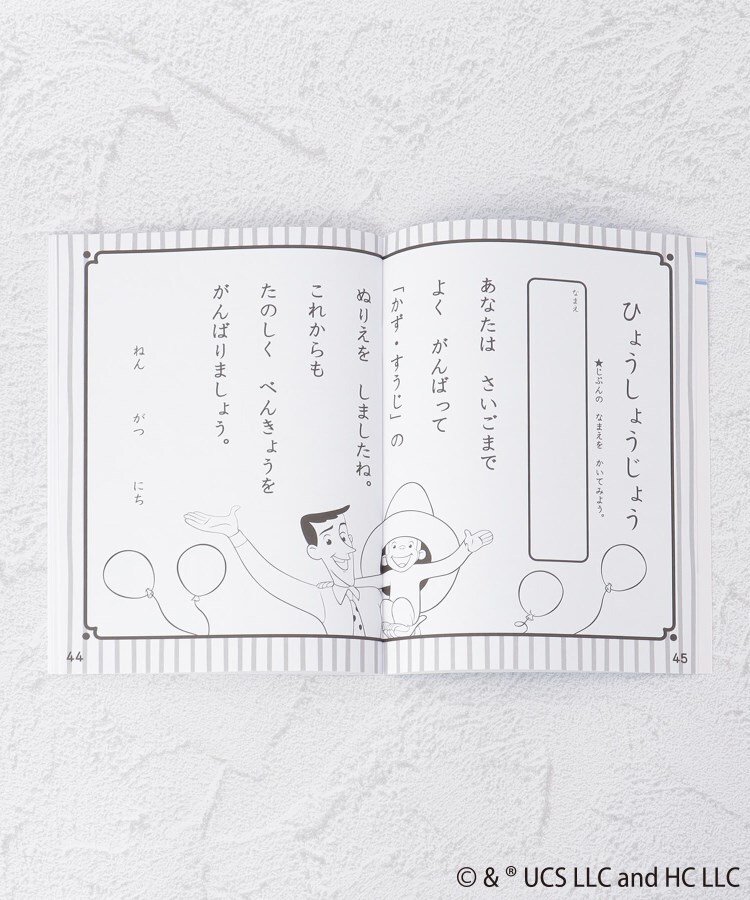 ひょうしょうじょう
★じぶんの なまえを かいてみよう。
なまえ
あなたは さいごまで
よく がんばって
「かず・すうじ」の
ぬりえを しましたね。
これからも
たのしく べんきょうを
がんばりましょう。
ねん がつ にち
44
45
© & ® UCS LLC and HC LLC